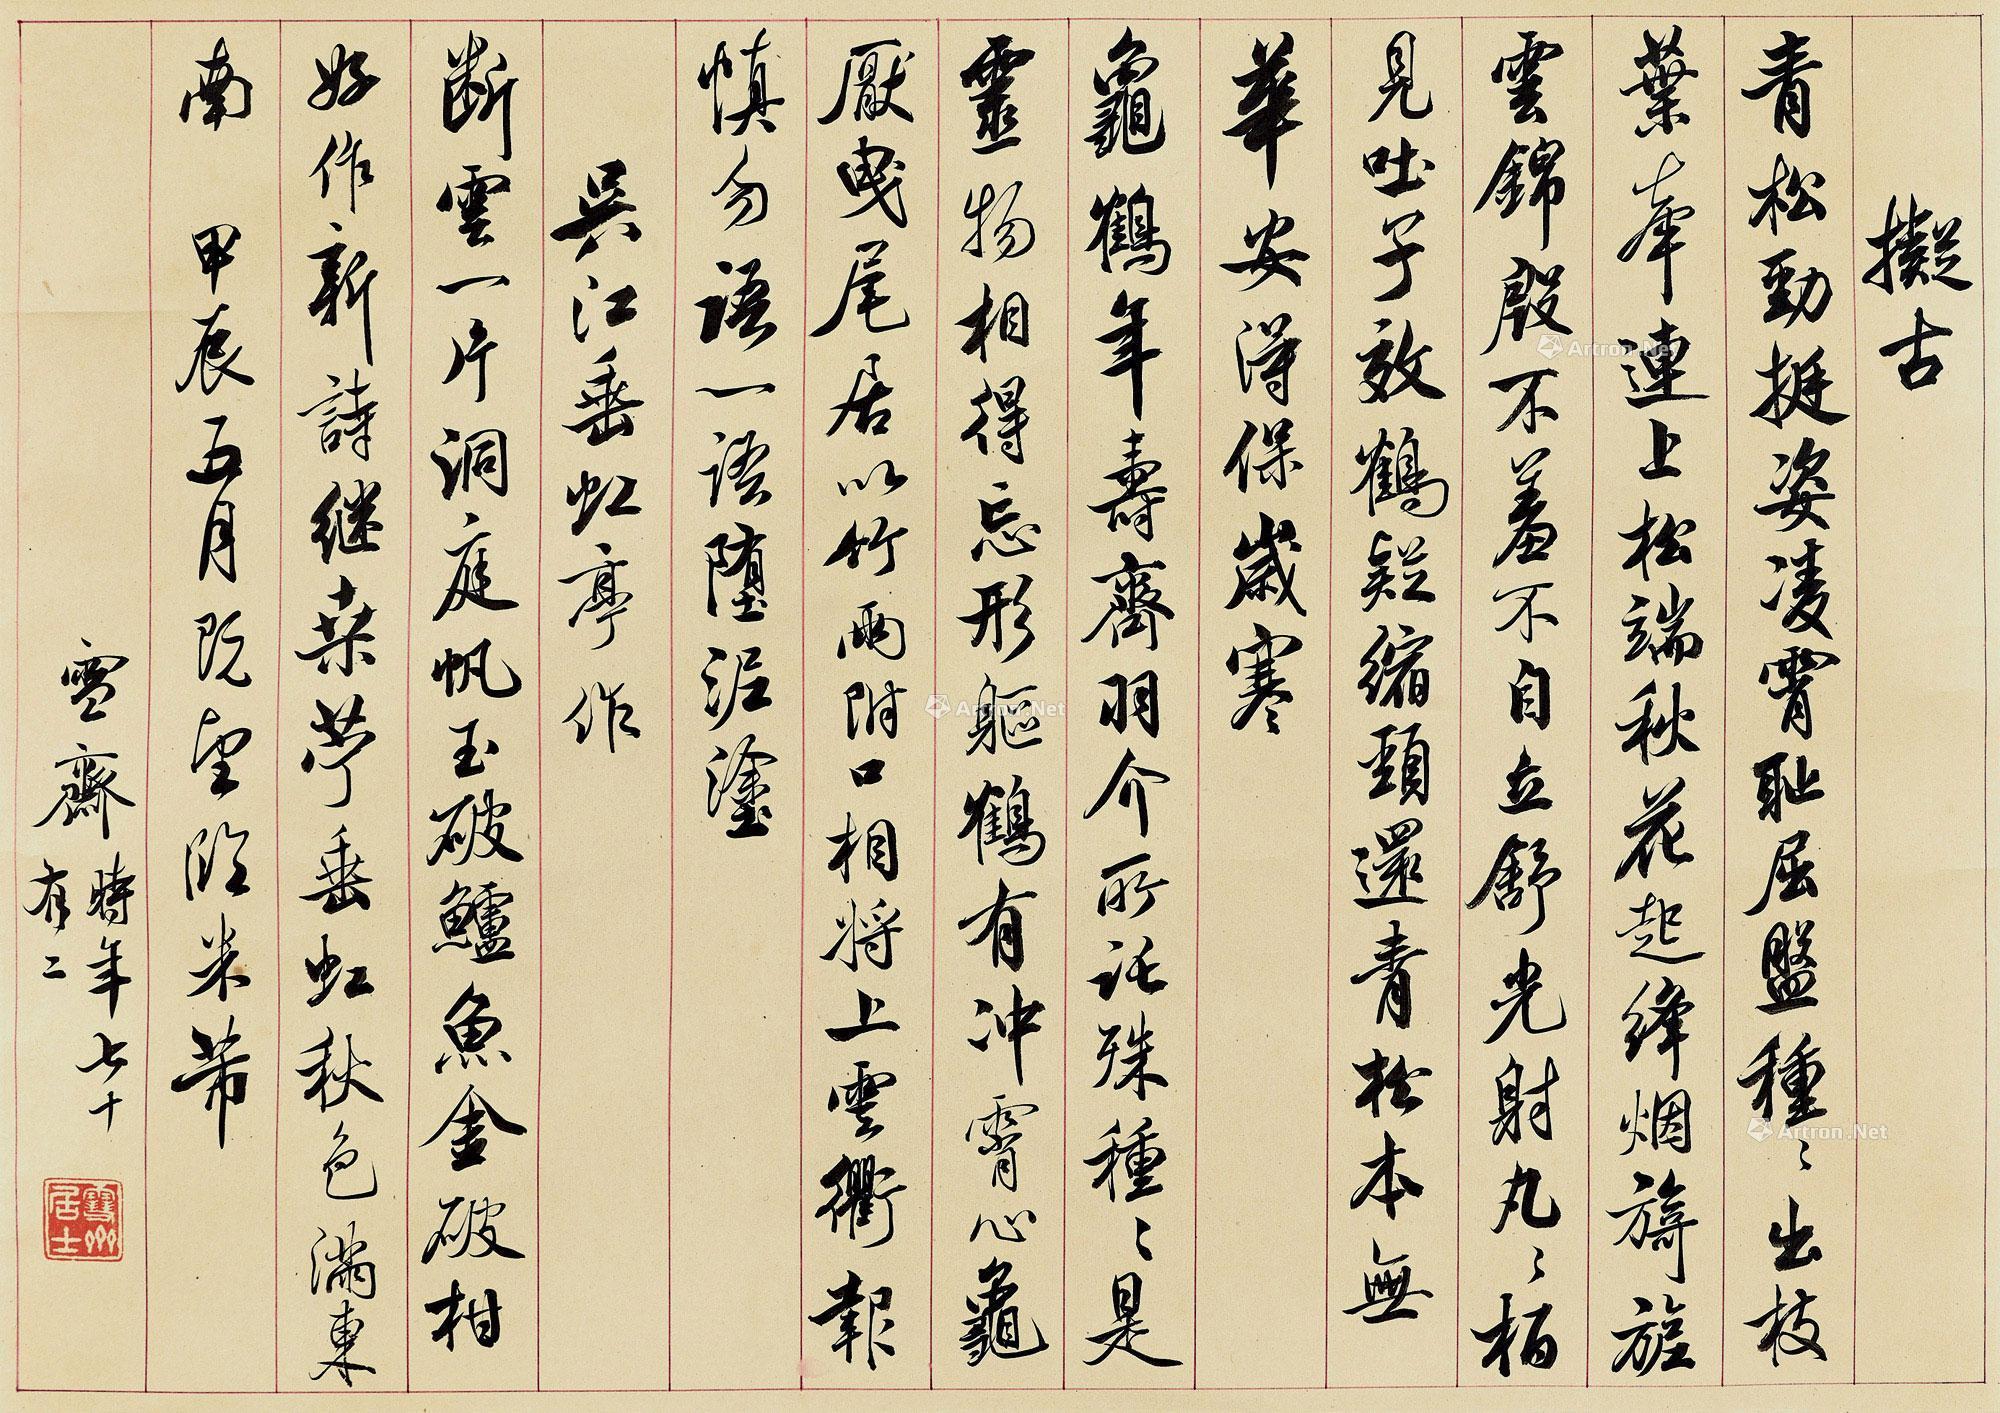 擬古
青松勁挺姿凌霄耻屈盤種〻出枝
葉牽連上松端秋花起絳烟旖旎
雲錦殷不羞不自立舒光射丸〻柏
見吐子效鶴疑縮頸還青松本無
華安得保歲寒
龜鶴年壽齊羽介所託殊種〻是
靈物相得忘形軀鶴有冲霄心龜
厭曳尾居以竹兩附口相將上雲衢報
慎勿語一語墮泥塗
吳江垂虹亭作
断雲一片洞庭帆玉破鱸魚金破柑
好作新詩继桒苧垂虹秋色滿東
南 甲辰五月既望臨米芾
雪齋時年七十
有二
雪州
居士
Artron.Net
Artron.Net
Artron.Net